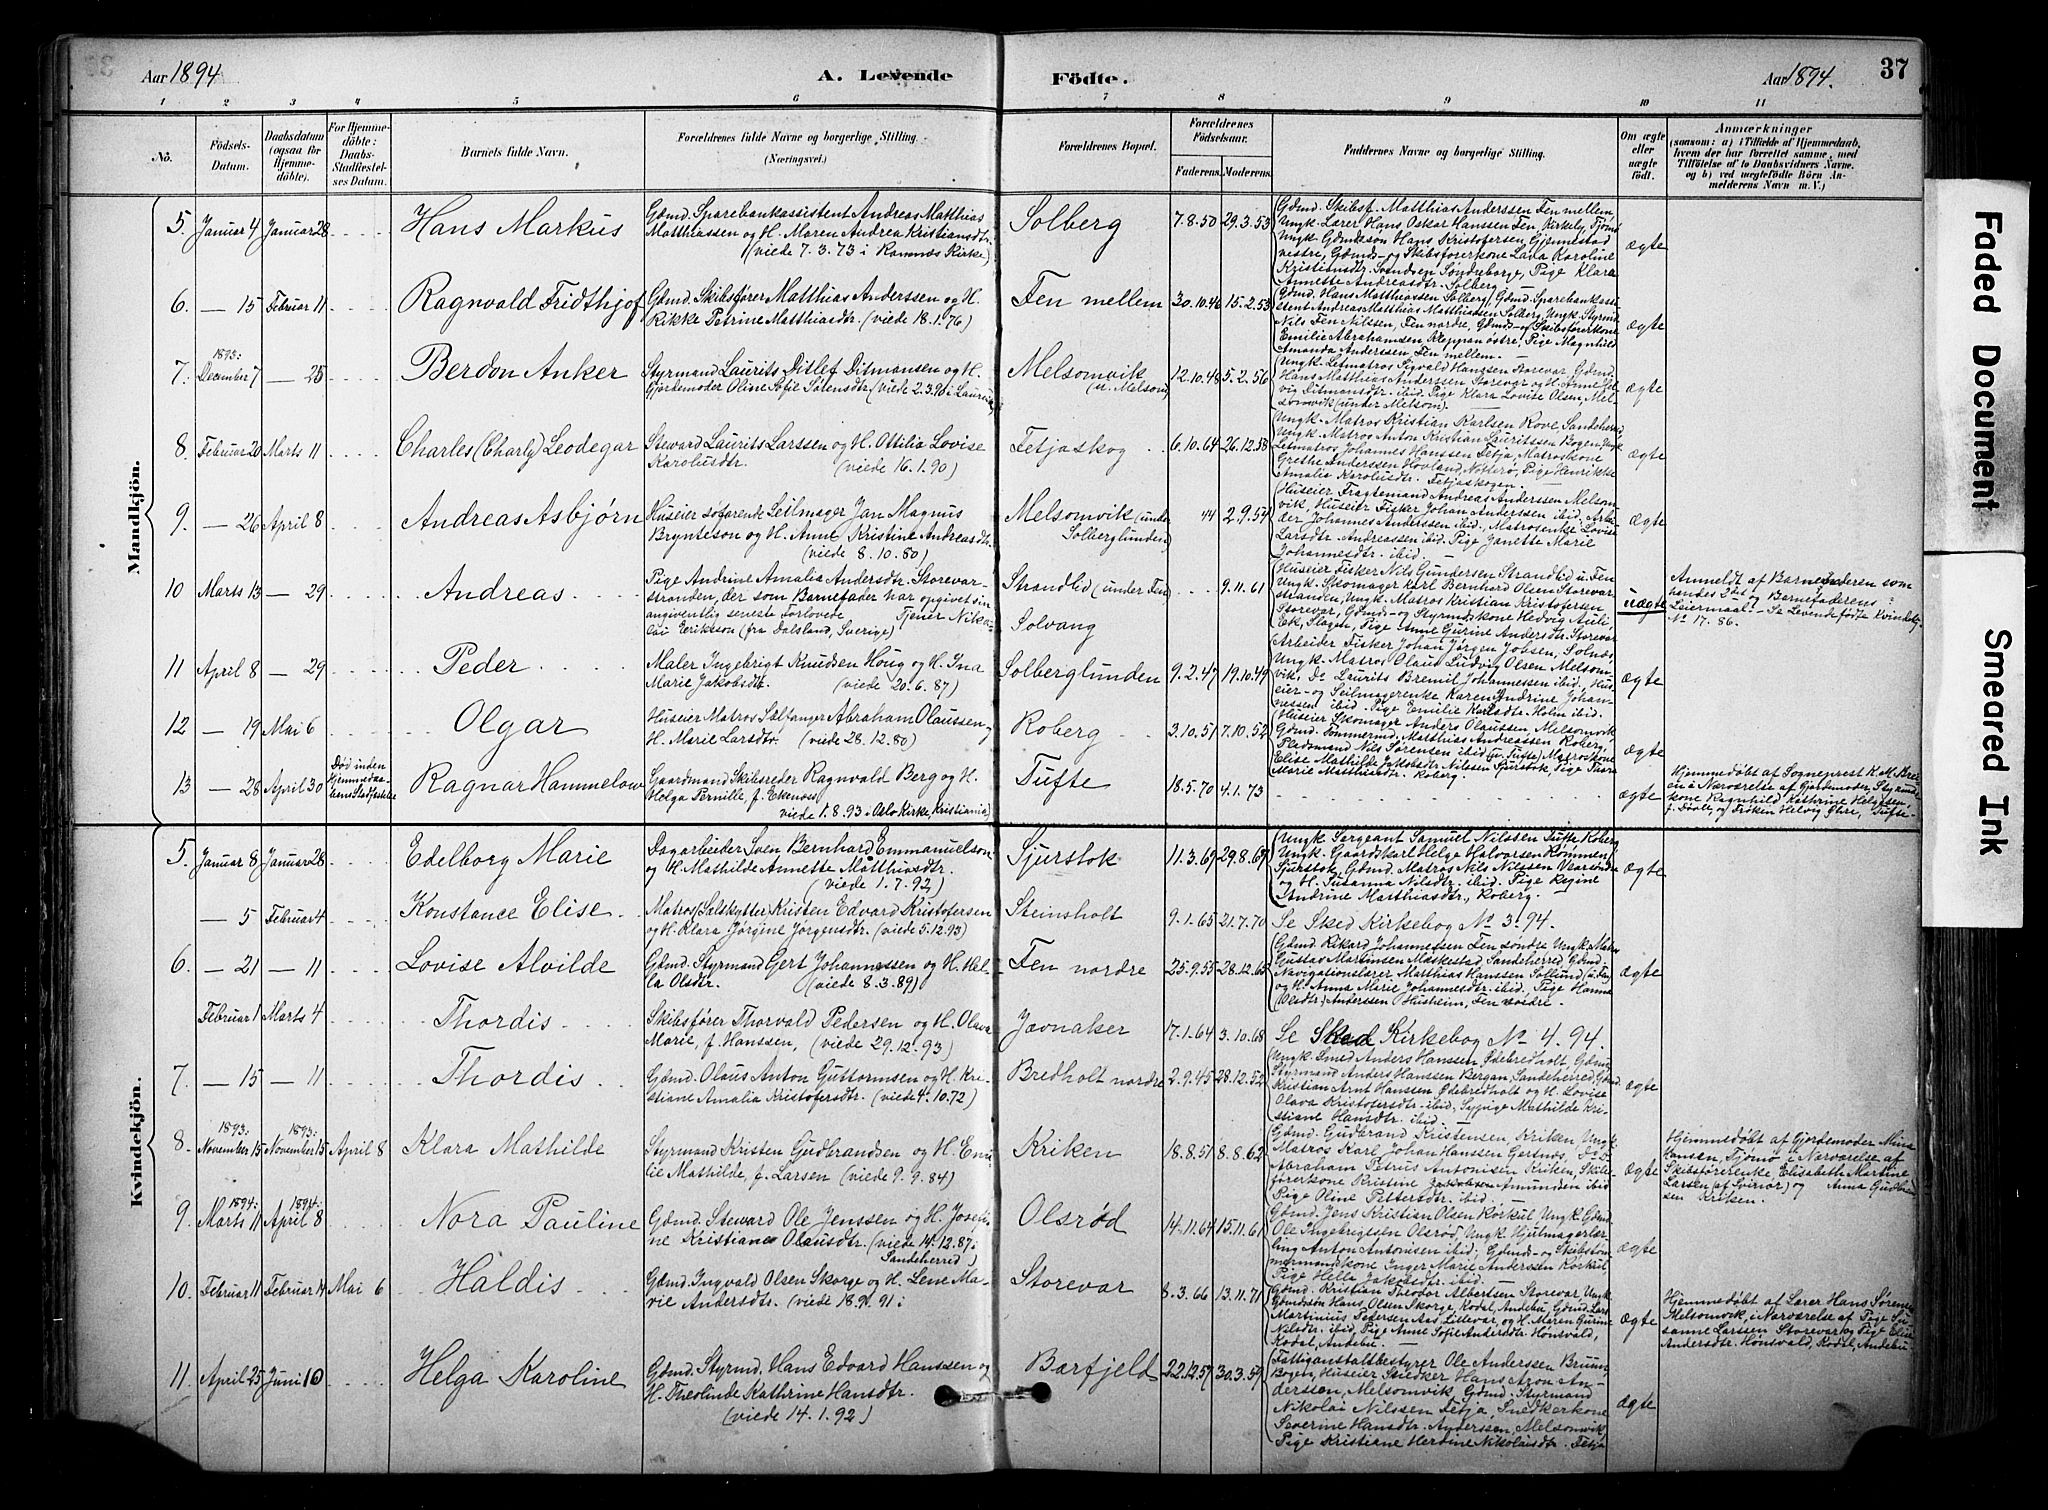 Aar 1894
A. Levende Födte.
Aar 1894.
37
1 2 3 4 5 6 7 8 9 10 11
No.
Födsels-Datum.
Daabsdatum (ogsaa för Hjemme-döbte).
For Hjemme-döbte: Daabs-Stadfæstel-ses Datum.
Barnets fulde Navn.
Forældrenes fulde Navne og borgerlige Stilling.
(Næringsvei.)
Forældrenes Bopæl.
Forældrenes Födselsaar.
Faderens. Moderens.
Faddernes Navne og borgerlige Stilling.
Om ægte eller uægte födt.
Anmærkninger
(saasom: a) i Tilfælde af Hjemmedaab, hvem der har forrettet samme, med Tilföielse af to Daabsvidners Navne, og b) ved uægtefödte Börn An-melderens Navn m. V.)
Mandkjön.
5. Januar 4 Januar 28 Hans Markus
Gdmd. Sparebankassistent Andreas Matthias
Matthiassen og H. Maren Andrea Kristiansdtr.
(viede 7.3.73 i Ramnæs Kirke)
Solberg 7.8.50 29.3.53
Gdmd. Skibsf. Matthias Anderssen Fen mellem,
Ungk. Lærer Hans Oskar Hanssen Fen, Kirkely, Tjømø
Ungk. Gdmdssøn Hans Kristofersen, Gjennestad
vestre, Gdmds- og Skibsførerkone Lava Karoline
Kristiansdtr. Svendsen Søndreborge, Pige Klara
Annette Andreasdtr. Solberg.
ægte
6. — 15 Februar 11 Ragnvald Fridthjof
Gdmd. Skibsfører Matthias Anderssen og H.
Rikke Petrine Matthiasdtr. (viede 18.1.76)
Fen mellem 30.10.46 15.2.53
Gdmd. Hans Matthiassen Solberg, Gdmd. Sparebankassi-
stent Andreas Matthias Matthiassen Solberg, Ungk. Styrmd.
Nils Fen Nilssen, Fen nordre, Gdmds- og Skibsførerkone
Emilie Abrahamsen, Kleppan østre, Pige Magnhild
Amanda Anderssen Fen mellem.
ægte
1893:
7. December 7 — 25 Berdon Anker
Styrmand Laurits Ditlef Ditmansen og H.
Gjordemoder Oline Sofie Sørensdtr.
Melsomvik (u. Melsom) 12.10.48 5.2.56
Ungk. Letmatros Sigvald Hanssen Storevar, Gdmd.
Hans Matthias Anderssen, Storevar og H. Anne Hel-
vig Ditmansdtr. ibid. Pige Klara Lovise Olsen, Mel-
somvik (under Melsom).
ægte
8. Februar 20 Marts 11 Charles (Charly) Leodegar
Steward Laurits Larssen og H. Ottilia Lovise
Karolusdtr. (viede 16.1.90)
Fetjaskog 6.10.64 26.12.58
Ungk. Matros Kristian Karlsen Rove Sandeherred,
Ungk. Matros Anton Kristian Lauritssen Bogen, Ungk.
Letmatros Johannes Hanssen Fetja, Matroskone
Grethe Anderssen Hovland, Nøtterø, Pige Henrikke
Amalia Karolusdtr. Fetjaskogen.
ægte
9. — 26 April 8 Andreas Asbjørn
Huseier søfarende Seilmager Jan Magnus
Bryntelson og H. Anne Kristine Andreasdtr.
(viede 8.10.80)
Melsomvik (under Solberglunden) 44 2.9.54
Huseier Fragtemand Andreas Anderssen Melsom-
vik, Huseier Fisker Johan Anderssen ibid. Arbei-
der Johannes Anderssen ibid. Matrosenke Lovise
Larsdtr. Andreassen ibid. Pige Janette Marie
Johannesdtr. ibid.
ægte
10 Marts 13 — 29 Andreas
Pige Andrine Amalia Andersdtr. Storevar-
stranden, der som Barnefader har opgivet sin
angiventlig seneste Forlovede Tjener Niko-
lai Eriksson (fra Dalsland, Sverige)
Strandlid (under Fen)
Solvang
9.11.61
Huseier Fisker Nils Gundersen Strandlid u. Fen
Ungk. Skomager Karl Bernhard Olsen Storevar-
stranden, Ungk. Matros Kristian Kristofersen
Storevar, Gdmd- og Styrmdskone Hedvig
Eek, Slagen, Pige Anne Gurine Andersdtr. Storevar
uægte
Anmeldt af Barnefaderen som
hendes 2det og Barnefaderens
Leiermaal. Se Levendefødte Kvindekj.
No 17. 86.
11 April 8 — 29 Peder
Maler Ingebrigt Knudsen Houg og H. Ina
Marie Jakobsdtr. (viede 20.6.87)
Solberglunden 9.2.47 19.10.49
Arbeider Fisker Johan Jørgen Jobsen, Solnæs,
Ungk. Matros Olaus Ludvig Olsen Melsom-
vik, Do Laurits Bremil Johannessen ibid, Hus-
eier- og Seilmagerenke Karen Andrine Johan-
nessen ibid. Pige Emilie Karlsdtr. Holm ibid.
ægte
12 — 19 Mai 6 Olgar
Huseier Matros Sælfanger Abraham Olaussen og
H. Marie Larsdtr. (viede 28.12.80)
Roberg 3.10.51 7.10.52
Huseier Skomager Anders Olaussen Melsomvik
Gdmd. Tømmermd. Matthias Andreassen Roberg,
Pladsmand Nils Sørensen ibid (u. Tufte) Matroskone
Elise Mathilde Jakobsdtr. Nilsen Sjurstok, Pige Thora
Marie Matthiasdtr. Roberg.
ægte
13 — 28 April 30 Død inden Hjemmedaa-bens Stadfæstelse
Ragnar Hammelow
Gaardmand Skibsreder Ragnvald Berg og H.
Helga Pernille, f. Ekenæss
viede 1.8.93 Oslo Kirke, Kristiania)
Tufte 18.5.70 4.1.73
ægte
Hjemmedøbt af Sogneprest K. M. Brei-
en i Nærværelse af Gjordemoder, Styrmds-
kone Ragnhild Kathrine Helgesen,
f. Døvle, og Frøken Helvig Ohre, Tufte.
Kvindekjön.
5. Januar 8 Januar 28 Edelborg Marie
Dagarbeider Sven Bernhard Emmanuelson
og H. Mathilde Annette Matthiasdtr.
(viede 1.7.92)
Sjurstok 11.3.67 29.8.67
Ungk. Sergeant Samuel Nilssen Tufte Roberg
Ungk. Gaardskarl Helge Halvorsen Rømmen,
Sjurstok, Gdmd. Matros Nils Nilssen Vearsøndre
og H. Susanna Nilsdtr. ibid. Pige Regine
Andrine Marthiasdtr., Roberg.
ægte
— 5 Februar 4 Konstance Elise
Matros (Sælskytter) Kristen Edvard Kristofersen
og H. Klara Jørgine Jørgensdtr. (viede 5.12.93)
Steinsholt 9.1.65 21.7.70
Se Sked Kirkebog No 3. 94.
6. — 21 — 11 Lovise Alvilde
Gdmd. Styrmand Gert Johannessen og H. Hel-
la Olsdtr. (viede 8.3.89)
Fen nordre 25.9.55 28.12.65
Gdmd. Rikard Johannessen Fen søndre Ungk. Matros
Gustav Martinsen Mæskestad, Sandeherred, Gdmd.
Navigationslærer Matthias Hanssen Sollund (u. Fen)
og H. Anna Marie Johannesdtr. ibid. Pige Hanna
(Olsdtr.) Anderssen Husheim, Fen nordre.
ægte
Februar 1 Marts 4 Thordis
Skibsfører Thorvald Pedersen og H. Olava
Marie, f. Hanssen, (viede 29.12.93)
Jovnaker 17.1.64 3.10.68
Se Sked Kirkebog No 4. 94.
7. — 15 — 11 Thordis
Gdmd. Olaus Anton Guttormsen og H. Kri-
stiane Amalia Kristofersdtr. (viede 4.10.72)
Bredholt nordre 2.9.45 28.12.52
Ungk. Smed Anders Hanssen Ødebredholt, Gdmd.
Styrmand Anders Hanssen Bergan, Sandeherred, Gdmd.
Kristian Arnt Hanssen Ødebredholt og H. Lovise
Olava Kristofersdtr. ibid, Sypige Mathilde Kri-
stiane Hansdtr. ibid.
ægte
1893: 1893:
8. November 15 November 15 April 8 Klara Mathilde
Styrmand Kristen Gudbrandsen og H. Emi-
lie Mathilde, f. Larsen (viede 9.9.84)
Kriken 18.8.51 8.8.62
Gdmd. Gudbrand Kristensen, Kriken, Ungk.
Matros Karl Johan Hanssen Gertsnæs, Do Do
Abraham Petrus Antonisen Kriken, Skibs-
førerkone Kristine Jakobsen Amunden ibid
Pige Oline Pettersdtr. ibid.
ægte
Hjemmedøbt af Gjordemoder Mina
Hansen, Tjømø i Nærværelse af
Skibsførerenke, Elisabeth Martine
Larsen (af Svinør) og Anna Gudbrand-
sen Kriken.
1894: 1894:
9. Marts 11 April 8 Nora Pauline
Gdmd. Steward Ole Jenssen og H. Josefi-
ne Kristiane Olausdtr. (viede 14.12.87 i
Sandeherred)
Olsrød 14.11.64 15.11.61
Gdmd. Jens Kristian Olsen Korkul, Ungk. Gdmd.
Ole Ingebrigtsen Olsrød, Ungk. Hjulmagerlær-
ling Anton Antonisen ibid; Gdmds- og Skibstøm-
mermandskone Inger Marie Anderssen Korkul,
Pige Helle Jakobsdtr. ibid.
ægte
10. Februar 11 Februar 14 Mai 6 Haldis
Gdmd. Ingvald Olsen Skorge og H. Lene Ma-
rie Andersdtr.
Storevar 8.3.66 13.11.71
Gdmd. Kristian Theodor Albertsen Storevar, Ungk.
Gdmdssøn Hans Olsen Skorge, Kodal, Andebu, Gdmd. Lars
Martinius Pedersen Aas Lillevar, og H. Maren Gurine
Nilsdtr. ibid, Pige Anne Sofie Andersdtr. Hønsvald,
Kodal, Andebu.
ægte
Hjemmedøbt af Lærer Hans Sørensen
Melsomvik, i Nærværelse af Pige Su-
sanne Larssen Storevar og Pige Elise
Andersdtr. Hønsvald, Kodal, Andebu
11. April 25 Juni 10 Helga Karoline
Gdmd. Styrmd. Hans Edvard Hanssen og
H. Theolinde Kathrine Hansdtr.
(viede 14.1.92)
Barfjeld 22.12.57 30.3.59
Fattiganstaltbestyrer Ole Anderssen Bruun,
Bogen, Huseier Snedker Hans Aron An-
derssen, Melsomvik, Gdmd. Styrmand
Nikolai Nilssen Fetja, Snedkerkone
Severine Hansdtr. Anderssen, Melsomvik,
Pige Kristiane Herdine Nikolaisdtr. Fetja
ægte
Faded Document
Smeared Ink